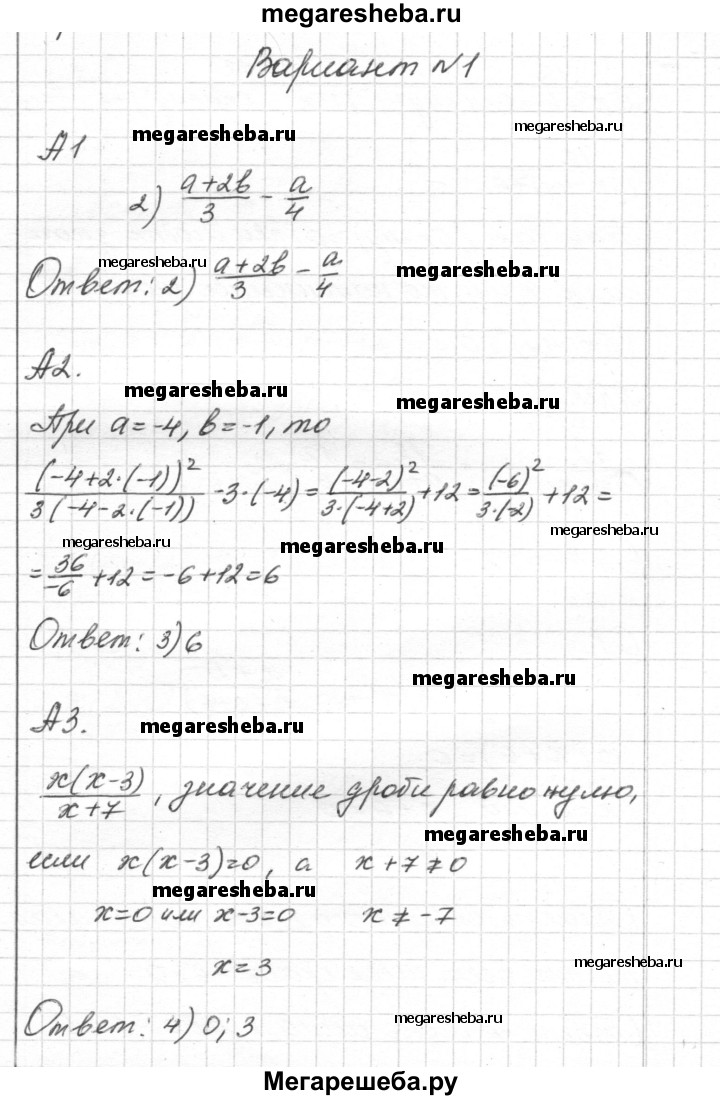 megaresheba.ru
Вариант №1
А1 megaresheba.ru megaresheba.ru
2) (a+2b)/3 - a/4
megaresheba.ru
Ответ: 2) (a+2b)/3 - a/4 megaresheba.ru
А2.
megaresheba.ru megaresheba.ru
При a=-4, b=-1, то
(-4+2·(-1))²/3(-4-2·(-1)) -3·(-4) = (-4-2)²/3·(-4+2) +12 = (-6)²/3·(-2) +12 =
megaresheba.ru megaresheba.ru megaresheba.ru
= 36/-6 +12 = -6+12=6
Ответ: 3) 6
megaresheba.ru
А3. megaresheba.ru
x(x-3)/x+7, значение дроби равно нулю,
megaresheba.ru
если x(x-3)=0, а x+7≠0
megaresheba.ru
x=0 или x-3=0 x≠-7
x=3 megaresheba.ru
Ответ: 4) 0; 3 megaresheba.ru
Мегарешеба.ру